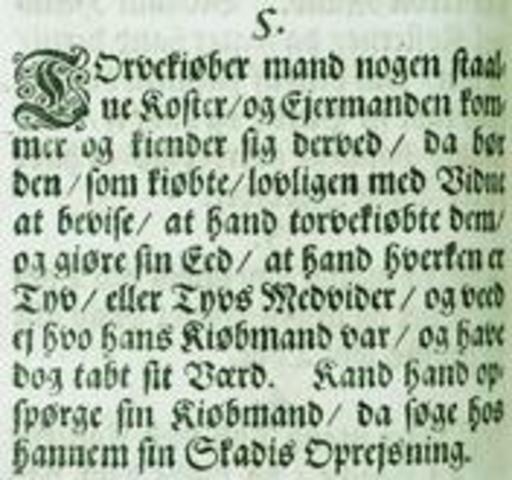 5.
TOrvekiøber mand nogen staal-
ne Koster/og Ejermanden kom-
mer og kiender sig derved/ da bør
den/som kiøbte/lovligen med Vidne
at bevise/ at hand torvekiøbte dem/
og giøre sin Eed/ at hand hverken er
Tyv/ eller Tyvs Medvider/ og veed
ej hvo hans Kiøbmand var/ og have
dog tabt sit Værd. Kand hand op-
spørge sin Kiøbmand/ da søge hos
hannem sin Skadis Oprejsning.